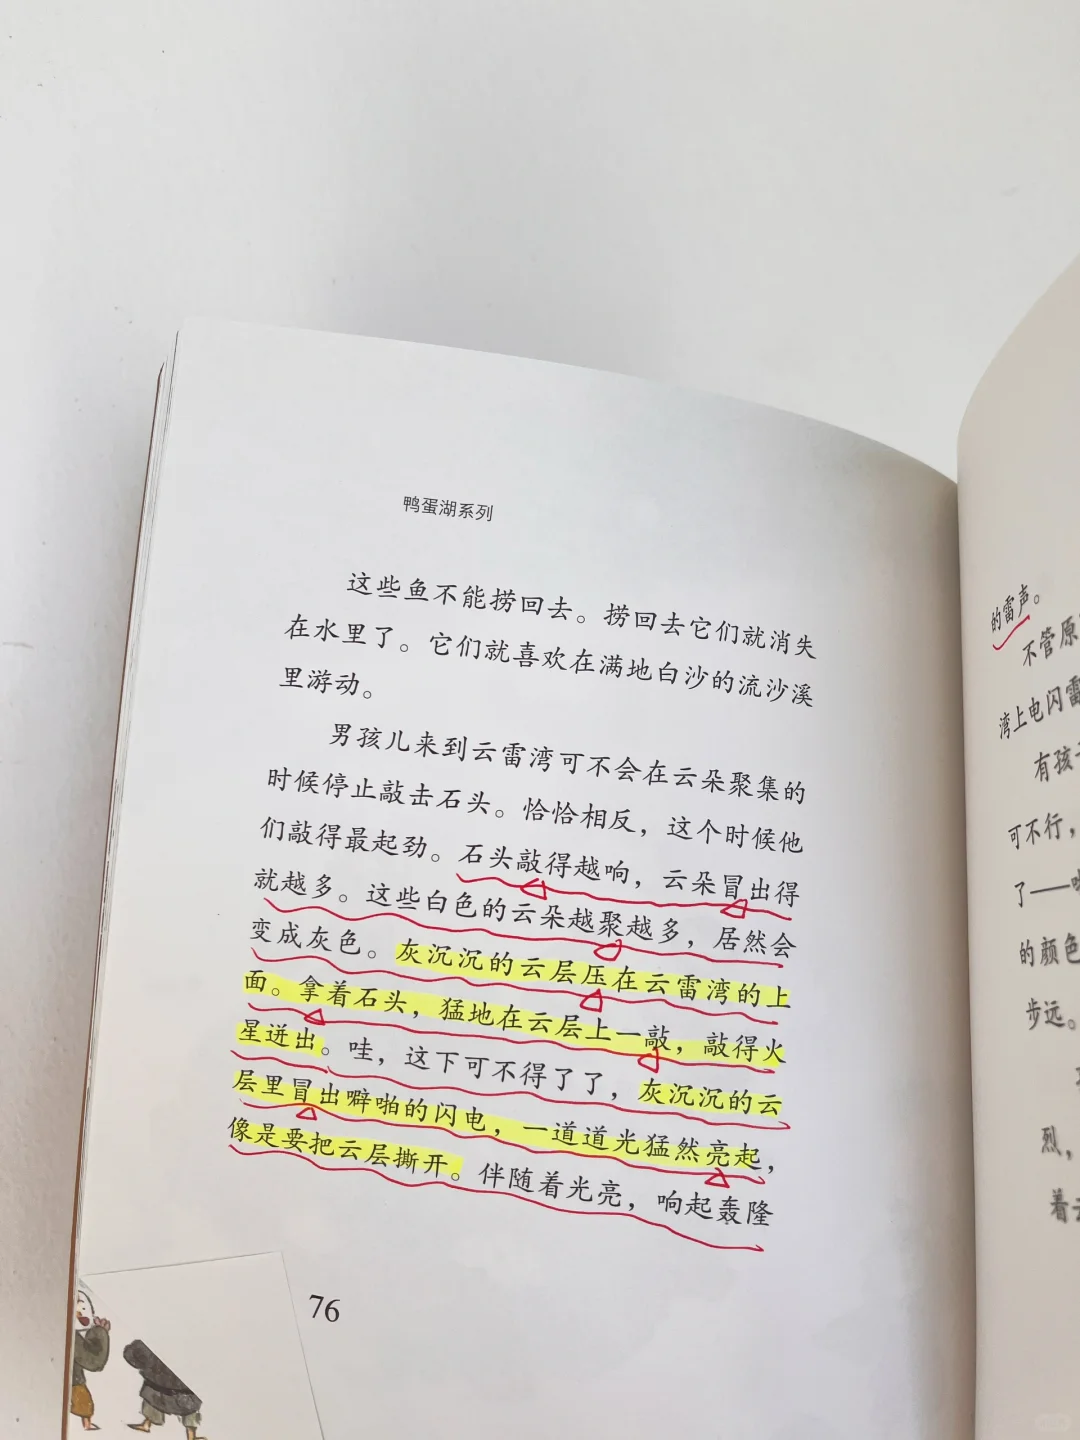 鸭蛋湖系列
这些鱼不能捞回去。捞回去它们就消失
在水里了。它们就喜欢在满地白沙的流沙溪
里游动。
男孩儿来到云雷湾可不会在云朵聚集的
时候停止敲击石头。恰恰相反，这个时候他
们敲得最起劲。石头敲得越响，云朵冒出得
就越多。这些白色的云朵越聚越多，居然会
变成灰色。灰沉沉的云层压在云雷湾的上
面。拿着石头，猛地在云层上一敲，敲得火
星迸出。哇，这下可不得了了，灰沉沉的云
层里冒出噼啪的闪电，一道道光猛然亮起，
像是要把云层撕开。伴随着光亮，响起轰隆
76
的雷声。
不管原
湾上电闪雷
有孩
可不行，
了——
的颜色
步远。
烈，
着云